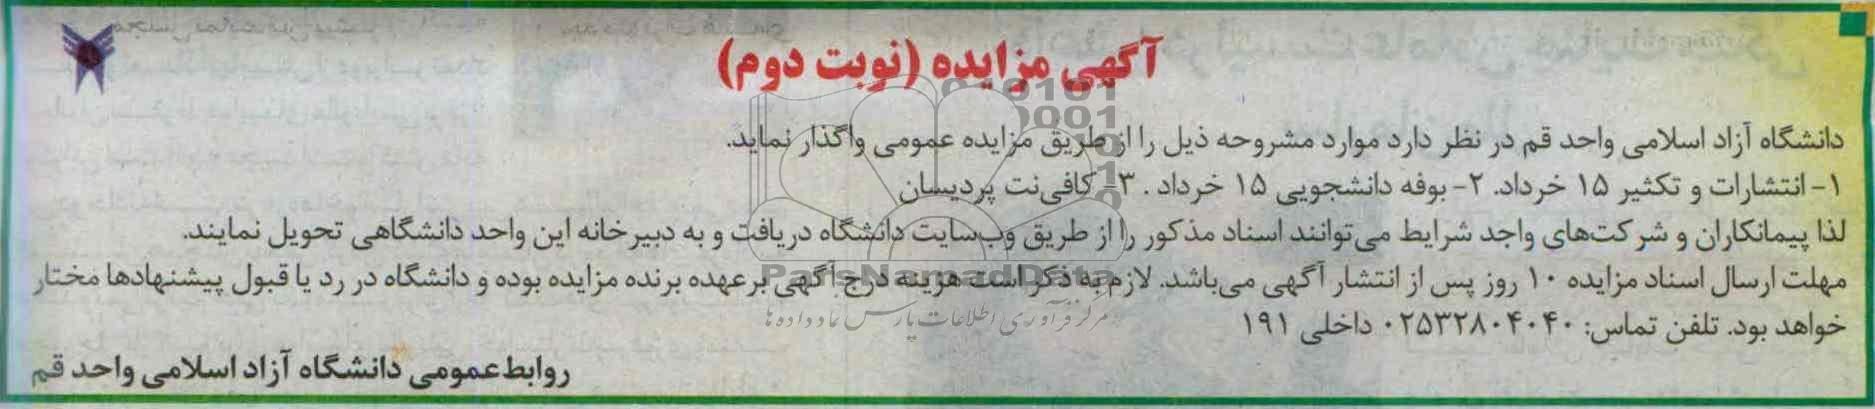 آگهی مزایده (نوبت دوم)
دانشگاه آزاد اسلامی واحد قم در نظر دارد موارد مشروحه ذیل را از طریق مزایده عمومی واگذار نماید.
۱- انتشارات و تکثیر ۱۵ خرداد. ۲- بوفه دانشجویی ۱۵ خرداد . ۳- کافی‌نت پردیسان
لذا پیمانکاران و شرکت‌های واجد شرایط می‌توانند اسناد مذکور را از طریق وب‌سایت دانشگاه دریافت و به دبیرخانه این واحد دانشگاهی تحویل نمایند.
مهلت ارسال اسناد مزایده ۱۰ روز پس از انتشار آگهی می‌باشد. لازم به ذکر است هزینه درج آگهی برعهده برنده مزایده بوده و دانشگاه در رد یا قبول پیشنهادها مختار
خواهد بود. تلفن تماس: ۰۲۵۳۲۸۰۴۰۴۰ داخلی ۱۹۱
روابط‌عمومی دانشگاه آزاد اسلامی واحد قم
ParsNamadData
مرکز فرآوری اطلاعات پارس نماد داده ها